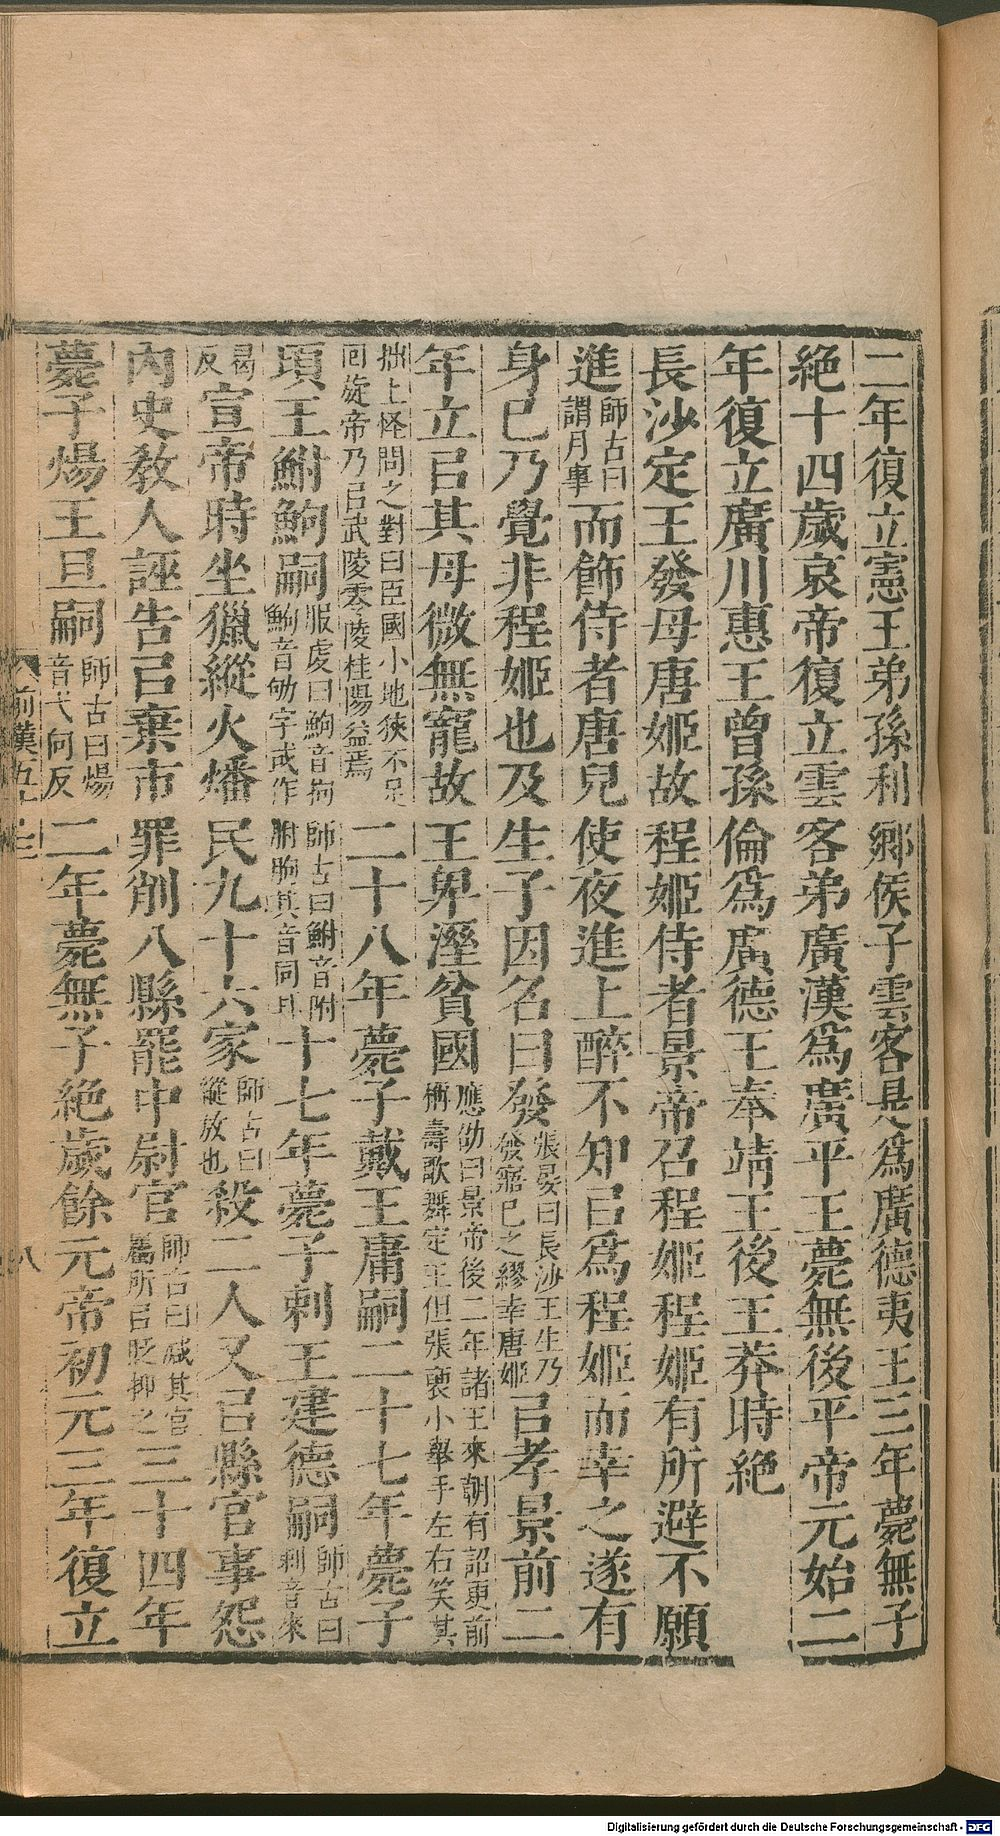 二年復立憲王弟孫利鄉侯子雲客是爲廣德夷王三年薨無子
絶十四歲哀帝復立雲客弟廣漢爲廣平王薨無後平帝元始二
年復立廣川惠王曾孫倫爲廣德王奉靖王後王莽時絶
長沙定王發母唐姬故程姬侍者景帝召程姬程姬有所避不願
進師古曰謂月事而飾侍者唐兒使夜進上醉不知㠯爲程姬而幸之遂有
身已乃覺非程姬也及生子因名曰發張晏曰長沙王生乃發寤已之繆幸唐姬㠯孝景前二
年立㠯其母微無寵故王卑溼貧國應劭曰景帝後二年諸王來朝有詔更前稱壽歌舞定王但張褏小舉手左右笑其
拙上怪問之對曰臣國小地狹不足回旋帝乃㠯武陵零陵桂陽益焉二十八年薨子戴王庸嗣二十七年薨子
頃王鮒鮈嗣服虔曰鮈音拘師古曰鮒音附鮈音劬字或作胕朐其音同耳十七年薨子剌王建德嗣師古曰剌音來
曷反宣帝時坐獵縱火燔民九十六家師古曰縱放也殺二人又㠯縣官事怨
內史敎人誣告㠯棄市罪削八縣罷中尉官師古曰減其官屬所㠯貶抑之三十四年
薨子煬王旦嗣師古曰煬音弋向反二年薨無子絶歲餘元帝初元三年復立
前漢五十三
八
Digitalisierung gefördert durch die Deutsche Forschungsgemeinschaft - DFG